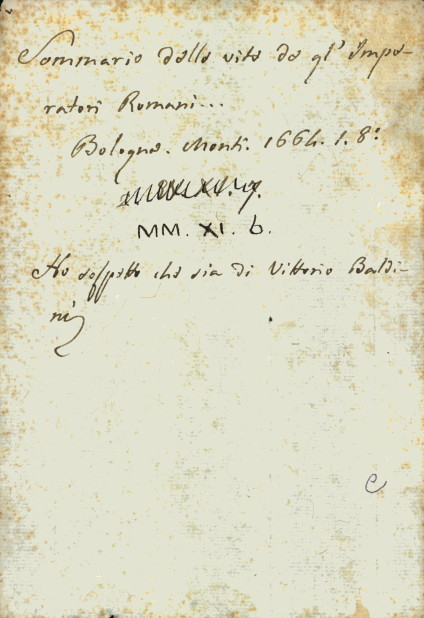 Sommario delle vite de gl' Impe-
ratori Romani...
Bologna. Monti. 1664. 1. 8.º
MM. XI. b.
Ho sospetto che sia di Vittorio Baldi-
ni
C